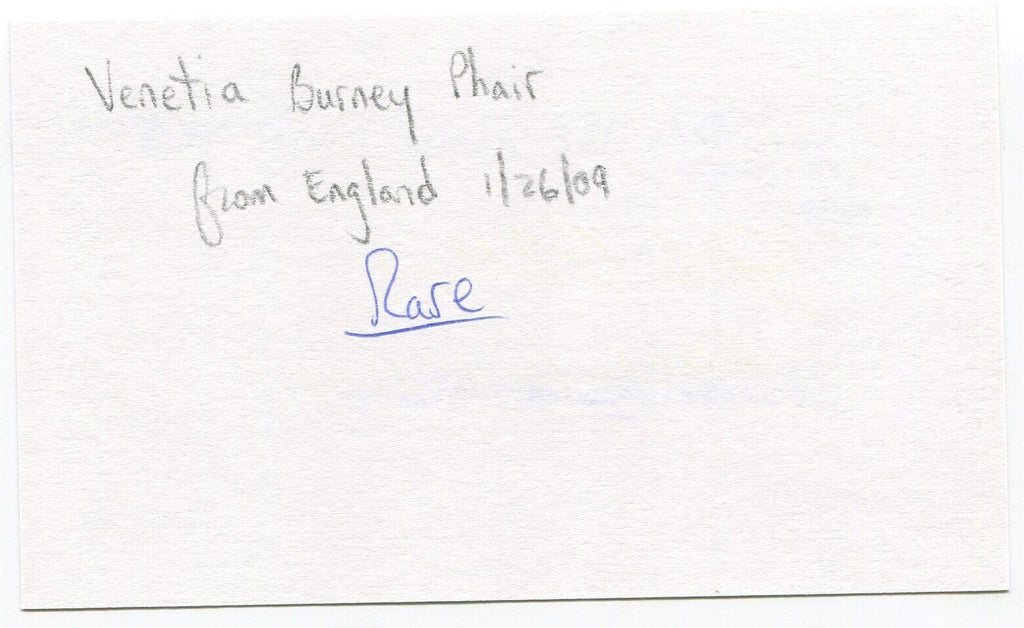 Venetia Burney Phair
from England 1/26/09
Rare